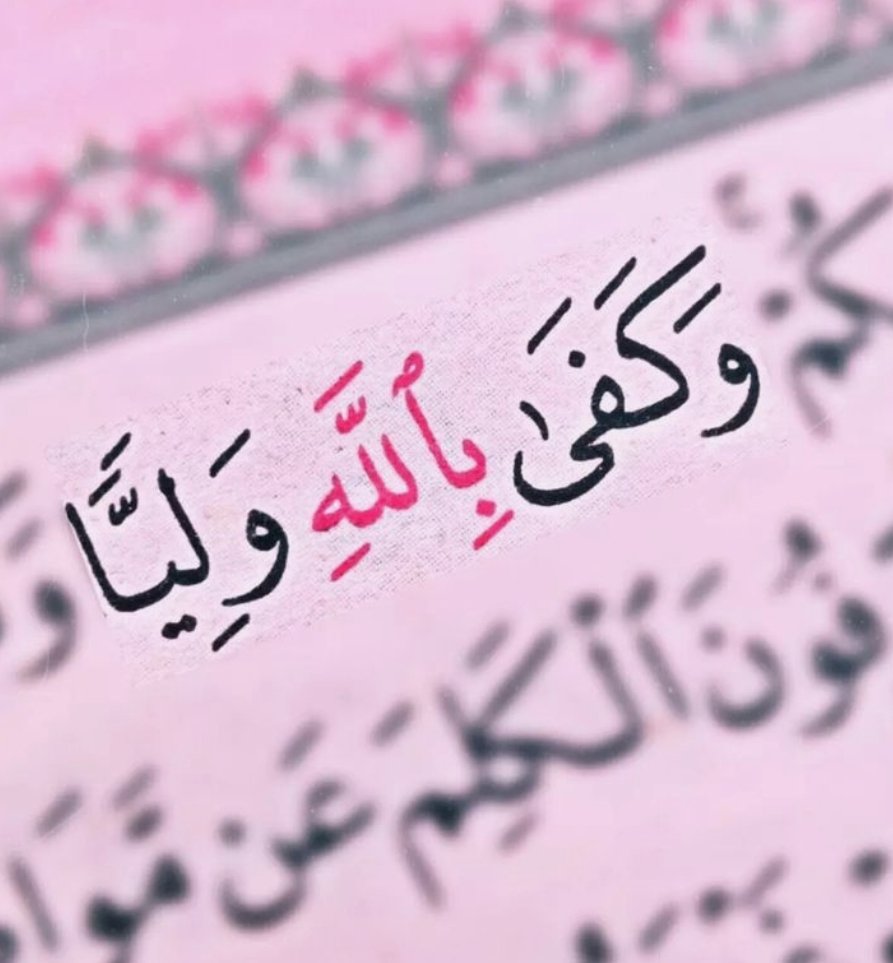 كُمْ وَكَفَىٰ بِٱللَّهِ وَلِيًّا
فُونَ ٱلْكَلِمَ عَن مَّوَا